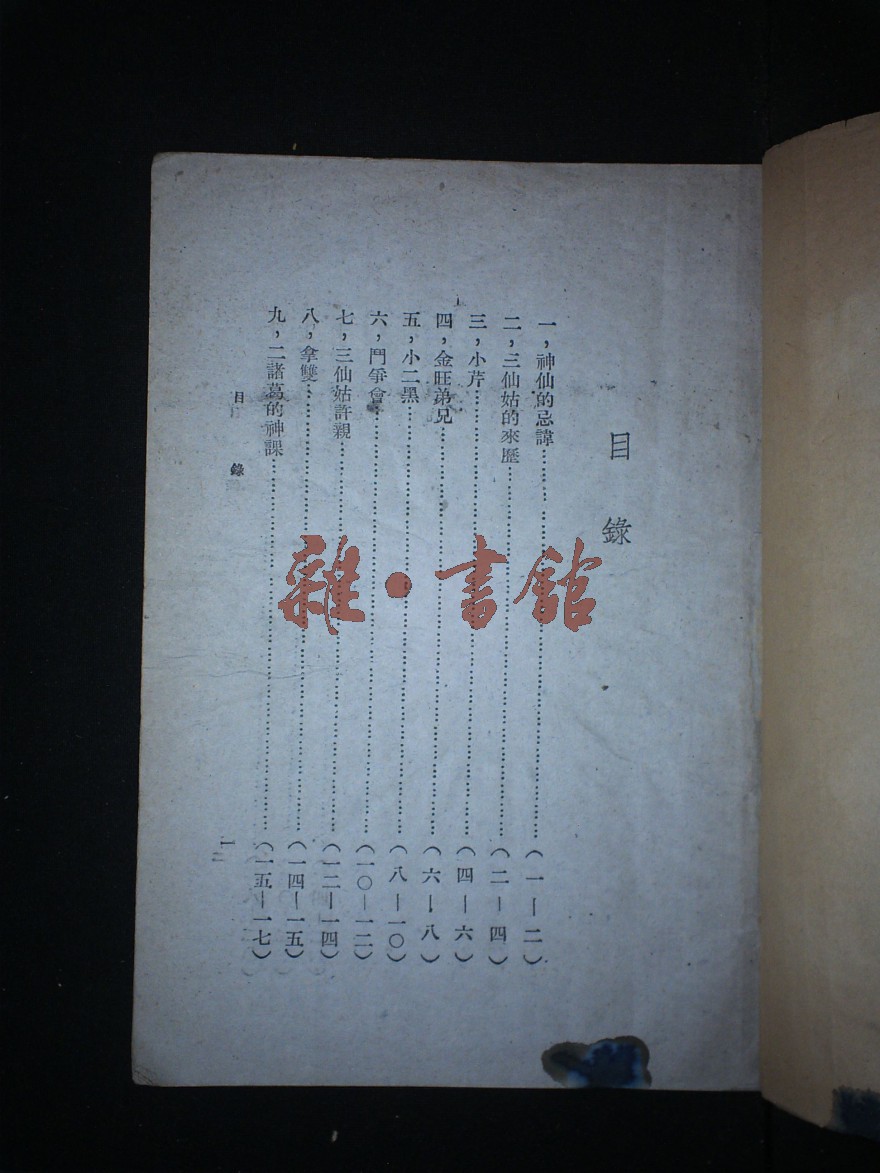 目錄
一，神仙的忌諱……（一—二）
二，三仙姑的來歷……（二—四）
三，小芹……（四—六）
四，金旺弟兄……（六—八）
五，小二黑……（八—一〇）
六，鬥爭會……（一〇—一二）
七，三仙姑許親……（一二—一四）
八，拿雙……（一四—一五）
九，二諸葛的神課……（一五—一七）
目錄
雜·書館